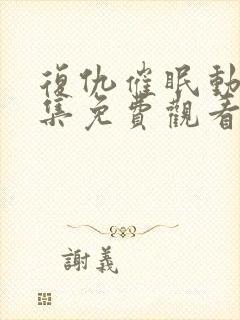 復仇催眠動
集免費觀看
謝義